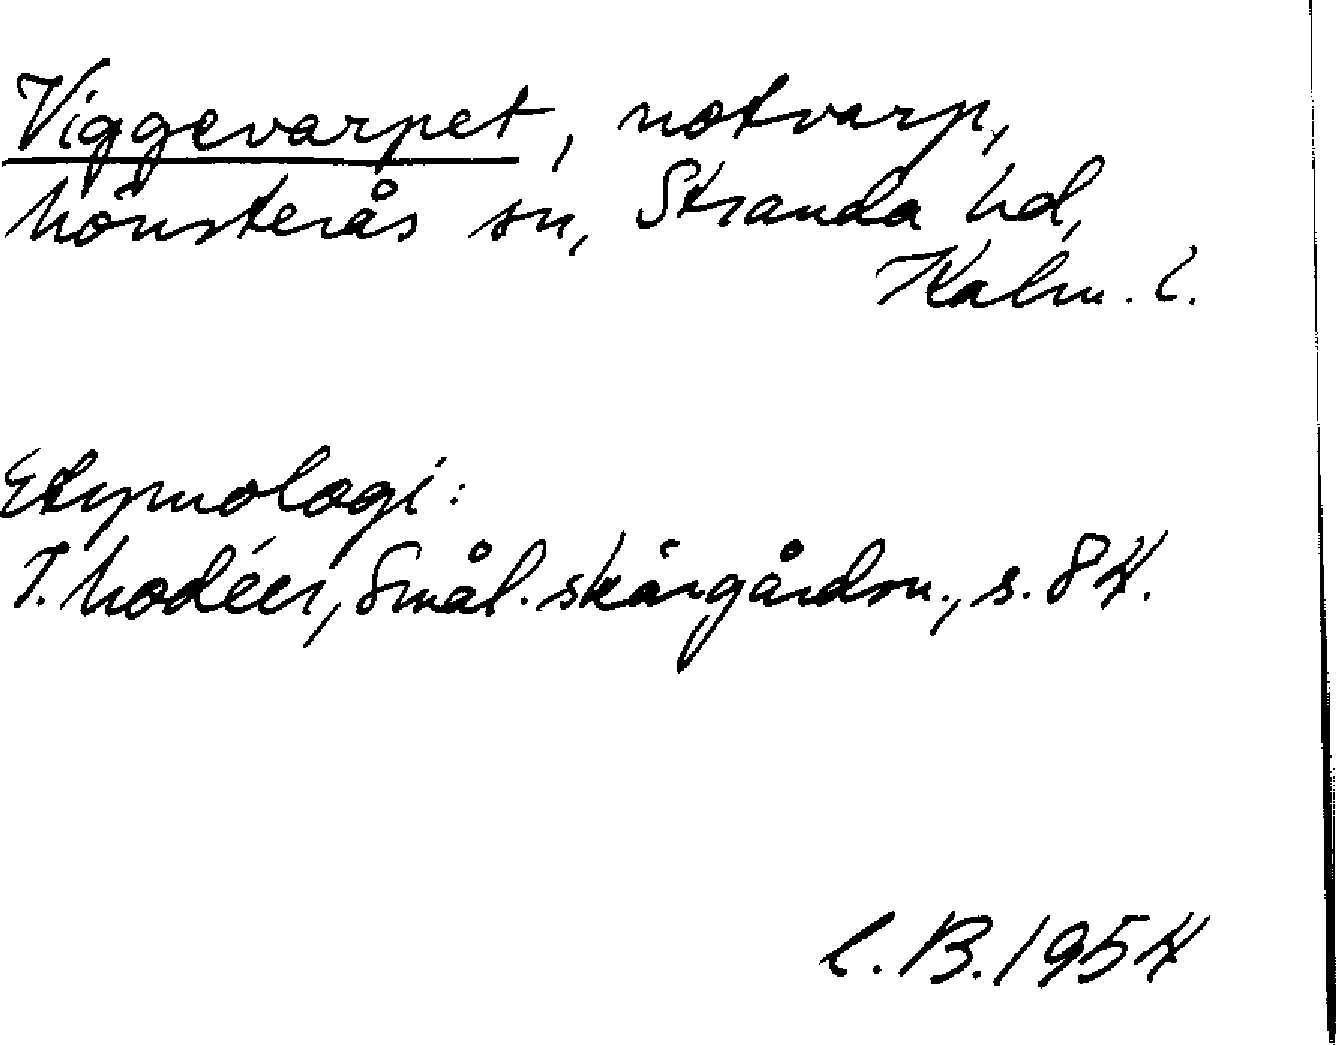 Viggevarpet, notvarp,
Mönsterås sn, Stranda hd,
Kalm. l.
Etymologi:
T. Modéer, Smål. skärgårdsn., s. 84.
C. B. 1954